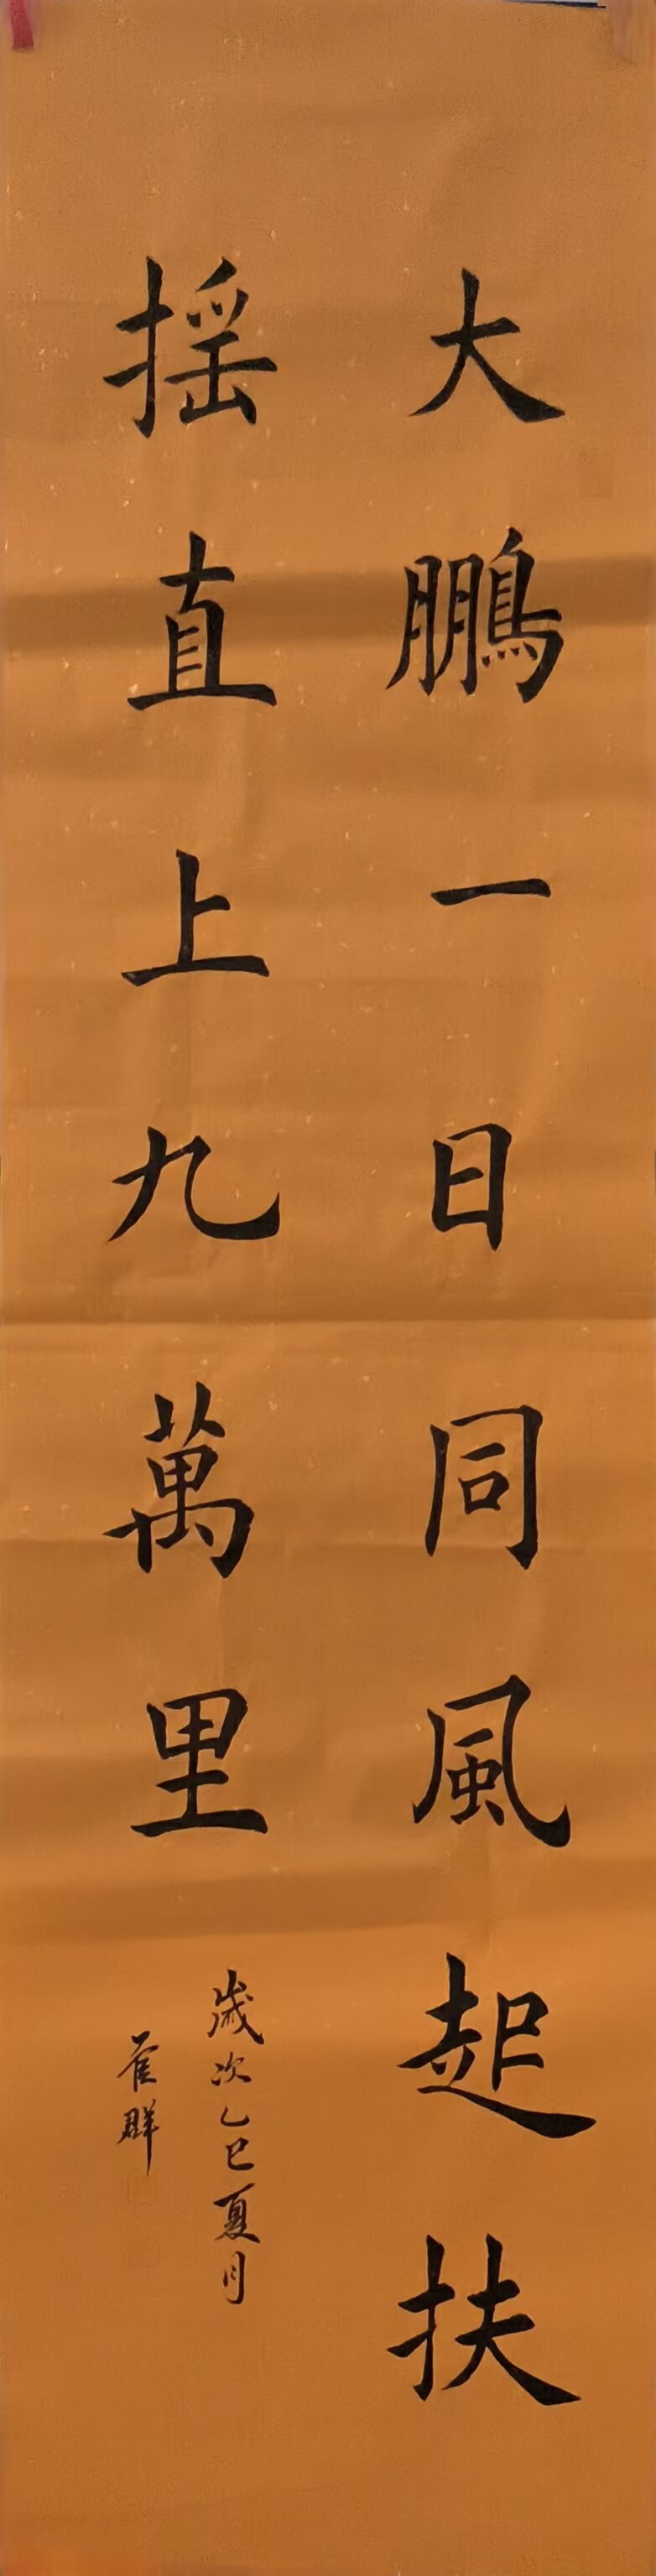 大鵬一日同風起扶
揺直上九萬里
歲次乙巳夏月
群